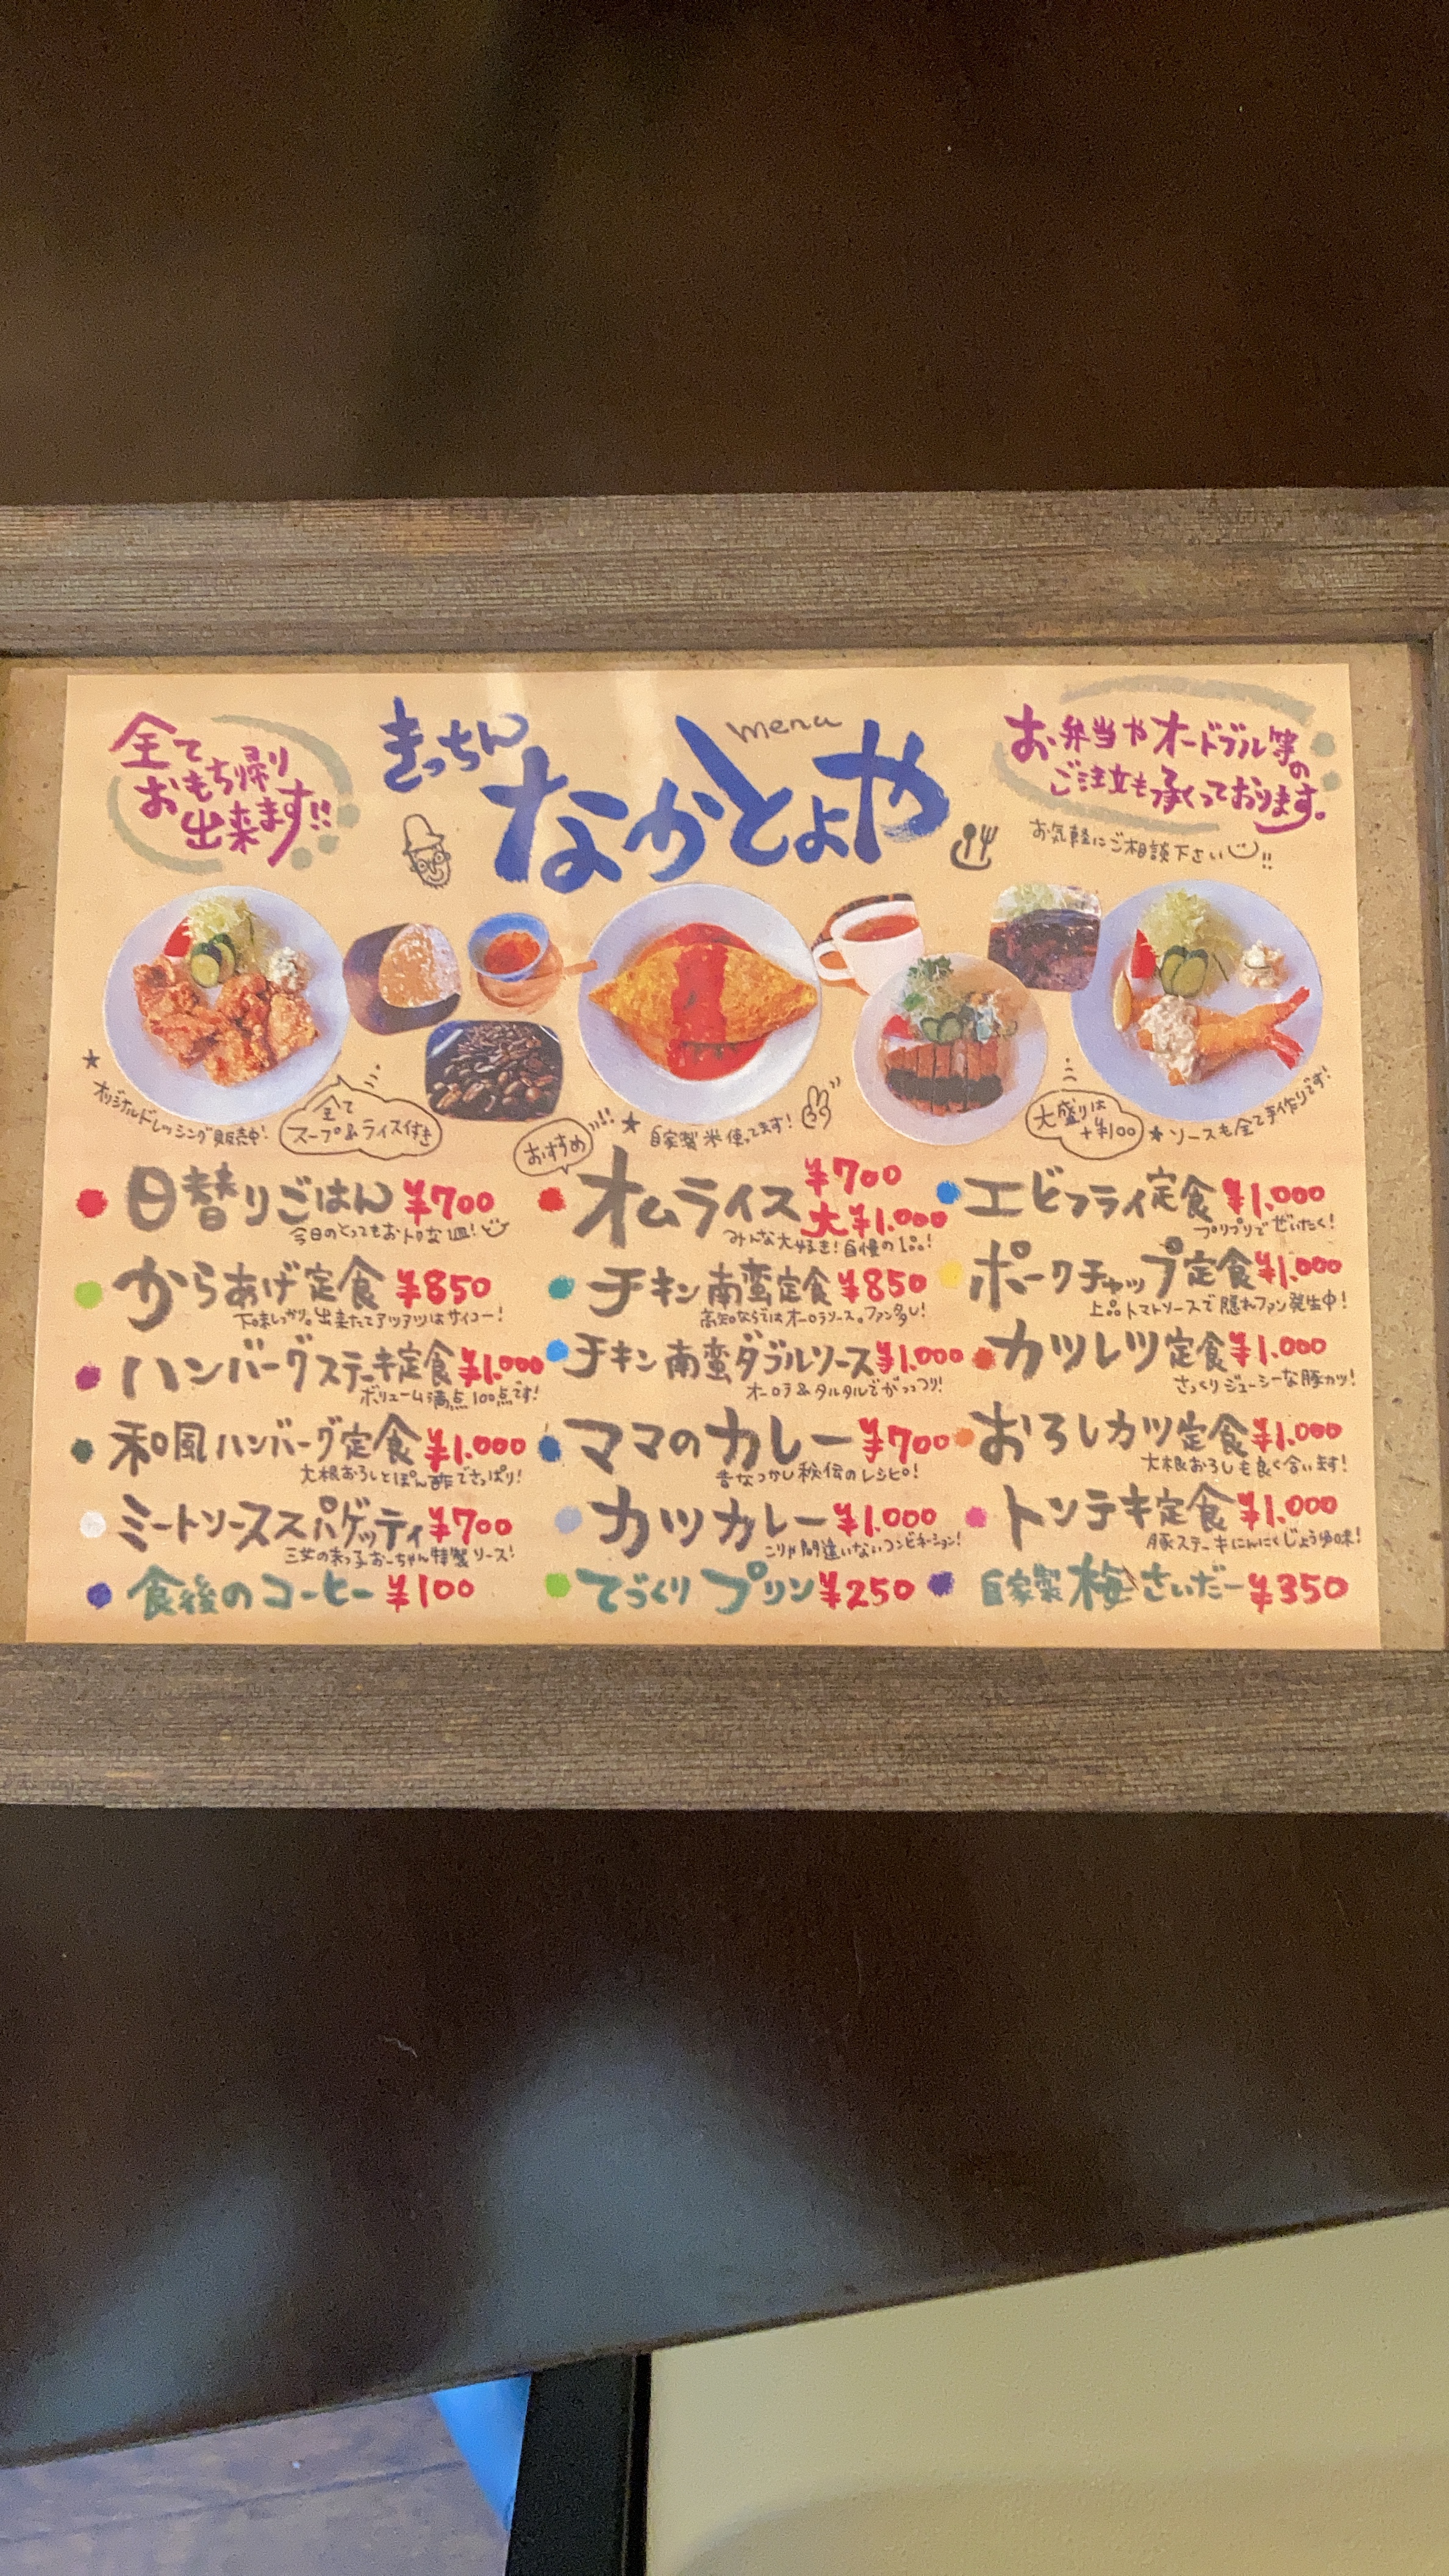 全て
おもち帰り
出来ます!!
きっちん
menu
なかとよや
お弁当やオードブル等の
ご注文も承くっております。
お気軽にご相談下さい!!
★オリジナルドレッシング販売中!
全て
スープ&ライス付き
おすすめ
★自家製米使ってます!
大盛りは
+¥100
★ソースも全て手作りです!
日替りごはん ¥700
今日のとってもおトクな1皿!
からあげ定食 ¥850
下味しっかり。出来たてアツアツはサイコー!
ハンバーグステーキ定食 ¥1.000
ボリューム満点100点です!
和風ハンバーグ定食 ¥1.000
大根おろしとぽん酢でさっぱり!
ミートソーススパゲッティ ¥700
三女の末っ子おーちゃん特製ソース!
食後のコーヒー ¥100
オムライス ¥700
大¥1.000
みんな大好き!自慢の1品!
チキン南蛮定食 ¥850
高知ならではオーロラソース。ファン多し!
チキン南蛮ダブルソース ¥1.000
オーロラ&タルタルでがっつり!
ママのカレー ¥700
昔なつかし秘伝のレシピ!
カツカレー ¥1.000
こりゃ間違いないコンビネーション!
てづくりプリン ¥250
エビフライ定食 ¥1.000
プリプリでぜいたく!
ポークチャップ定食 ¥1.000
上品トマトソースで隠れファン発生中!
カツレツ定食 ¥1.000
さっくりジューシーな豚カツ!
おろしカツ定食 ¥1.000
大根おろしも良く合います!
トンテキ定食 ¥1.000
豚ステーキにんにくじょうゆ味!
自家製梅さいだー ¥350